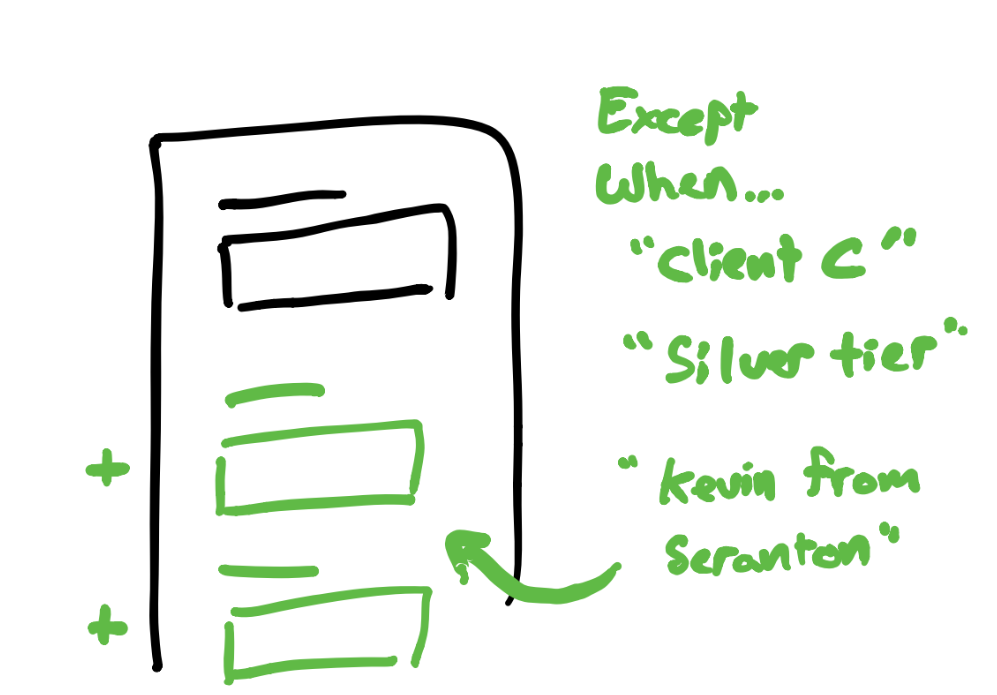 Except
When...
"Client C"
"Silver tier".
"Kevin from
Scranton"
+
+